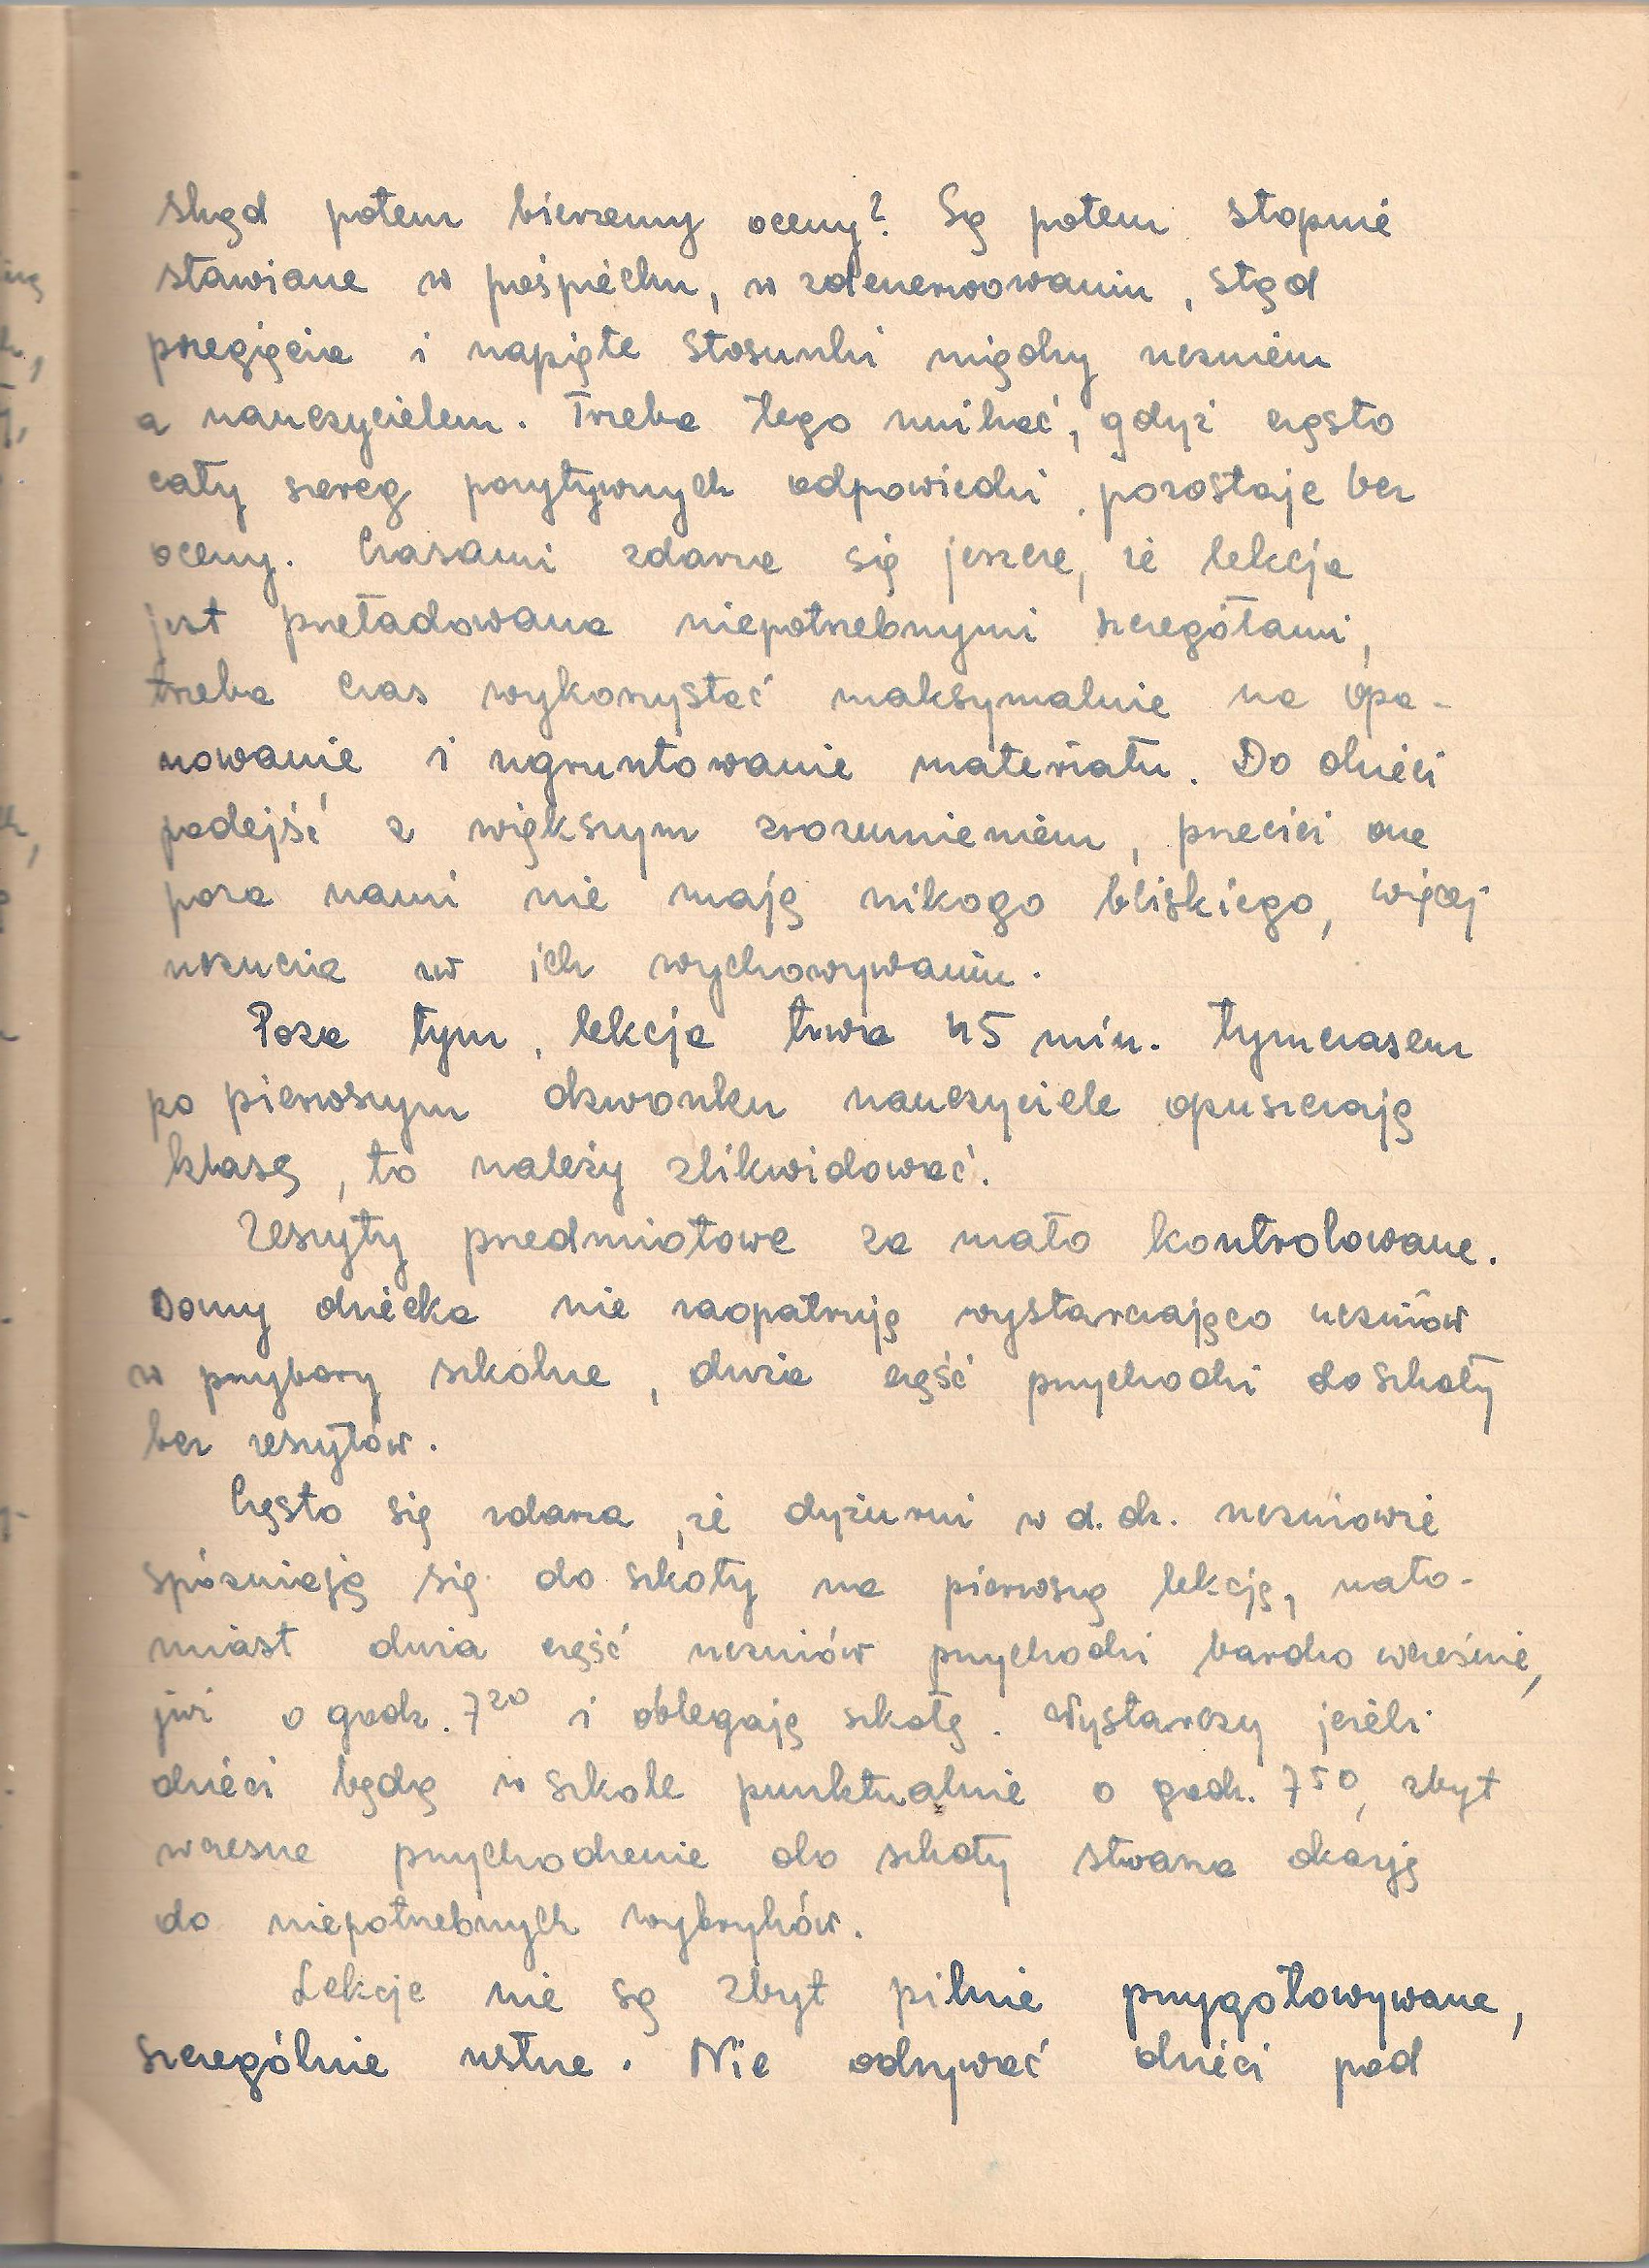 skąd potem bierzemy oceny? Są potem stopnie
stawiane w pośpiechu, w zdenerwowaniu, stąd
przegięcia i napięte stosunki między uczniem
a nauczycielem. Trzeba tego unikać, gdyż często
cały szereg pozytywnych odpowiedzi pozostaje bez
oceny. Czasami zdarza się jeszcze, że lekcja
jest przeładowana niepotrzebnymi szczegółami,
trzeba czas wykorzystać maksymalnie na opa-
nowanie i ugruntowanie materiału. Do dzieci
podejść z większym zrozumieniem, przecież one
poza nami nie mają nikogo bliskiego, więcej
uczucia w ich wychowywaniu.
Poza tym, lekcja trwa 45 min. tymczasem
po pierwszym dzwonku nauczyciele opuszczają
klasę, to należy zlikwidować.
Zeszyty przedmiotowe za mało kontrolowane.
Domy dziecka nie zaopatrują wystarczająco uczniów
w przybory szkolne, duża część przychodzi do szkoły
bez zeszytów.
Często się zdarza, że dyżurni w d. dz. uczniowie
spóźniają się do szkoły na pierwszą lekcję, nato-
miast duża część uczniów przychodzi bardzo wcześnie,
już o godz. 7²⁰ i oblegają szkołę. Wystarczy jeżeli
dzieci będą w szkole punktualnie o godz. 7⁵⁰, zbyt
wczesne przychodzenie do szkoły stwarza okazję
do niepotrzebnych wybryków.
Lekcje nie są zbyt pilnie przygotowywane,
szczególnie ustne. Nie odrywać dzieci pod